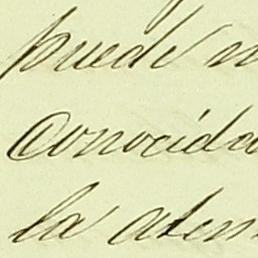 puede
conocida
la aten